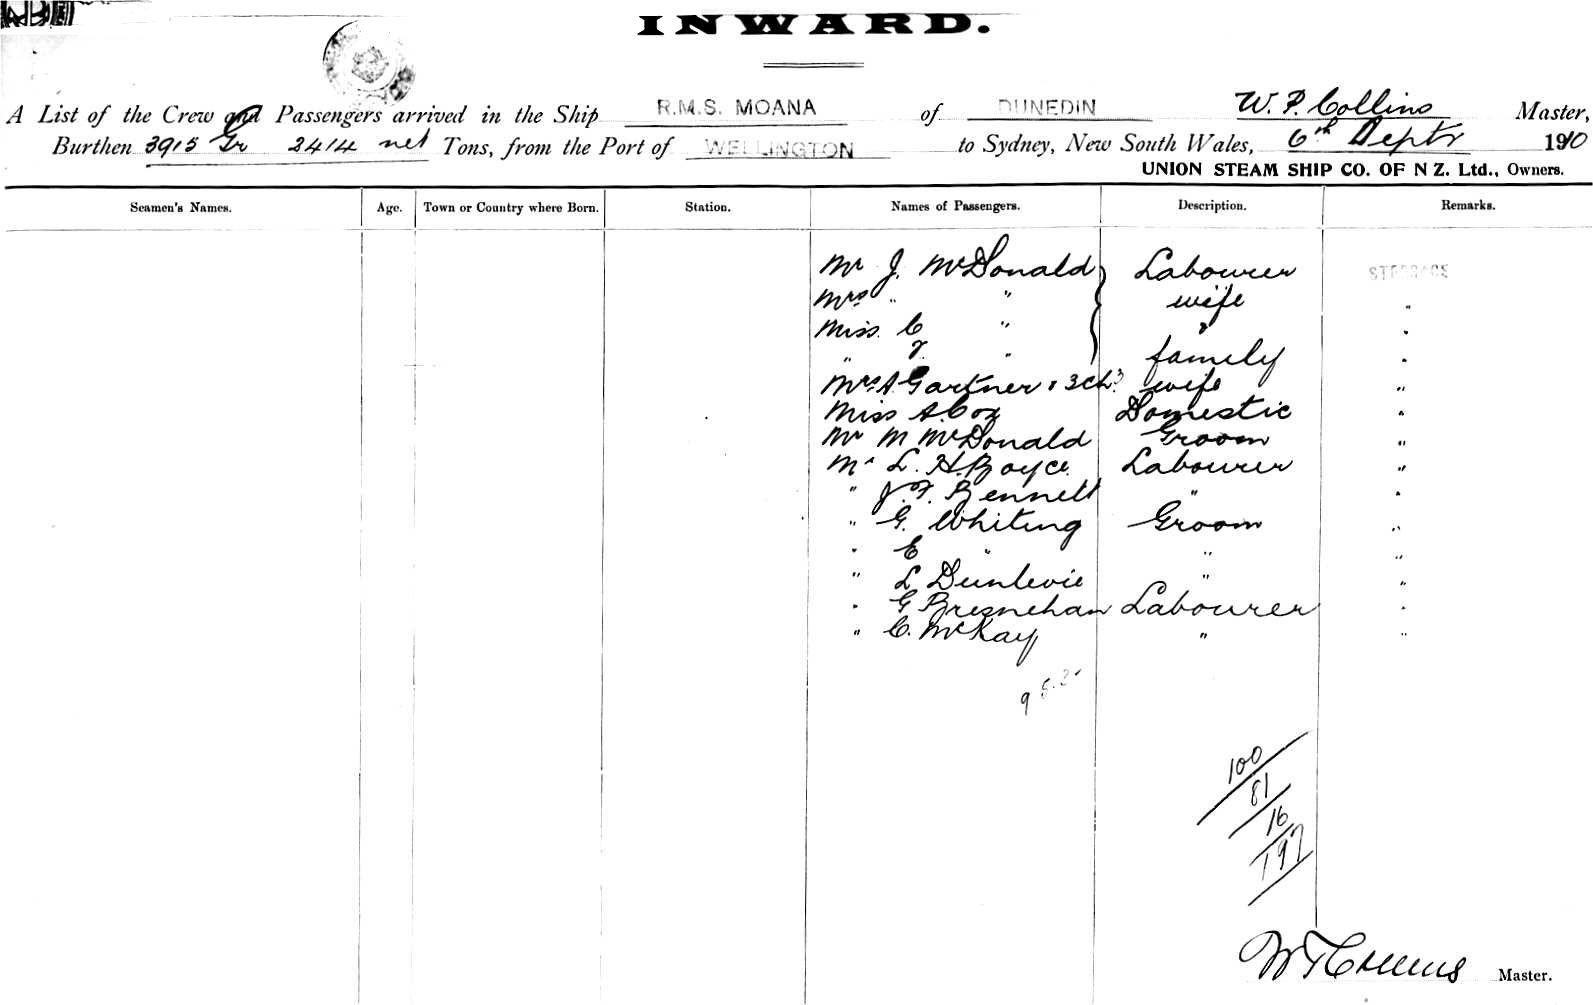 INWARD.
A List of the Crew and Passengers arrived in the Ship R.M.S. MOANA of DUNEDIN W. P. Collins Master,
Burthen 3915 Gr 2414 net Tons, from the Port of WELLINGTON to Sydney, New South Wales, 6th Septr 1910
UNION STEAM SHIP CO. OF N Z. Ltd., Owners.
Seamen's Names. Age. Town or Country where Born. Station. Names of Passengers. Description. Remarks.
Mr J. McDonald Labourer STEERAGE
Mrs " " wife "
Miss C " "
" " family "
Mrs A Gartner & 3 ch wife "
Miss A. Cox Domestic "
Mr M McDonald Groom "
Mr L. H. Boyce Labourer "
" J. F. Bennett " "
" G. Whiting Groom "
" E " " "
" L Dunlevie " "
" G Bresnehan Labourer "
" C. McKay " "
100
81
16
197
Master.